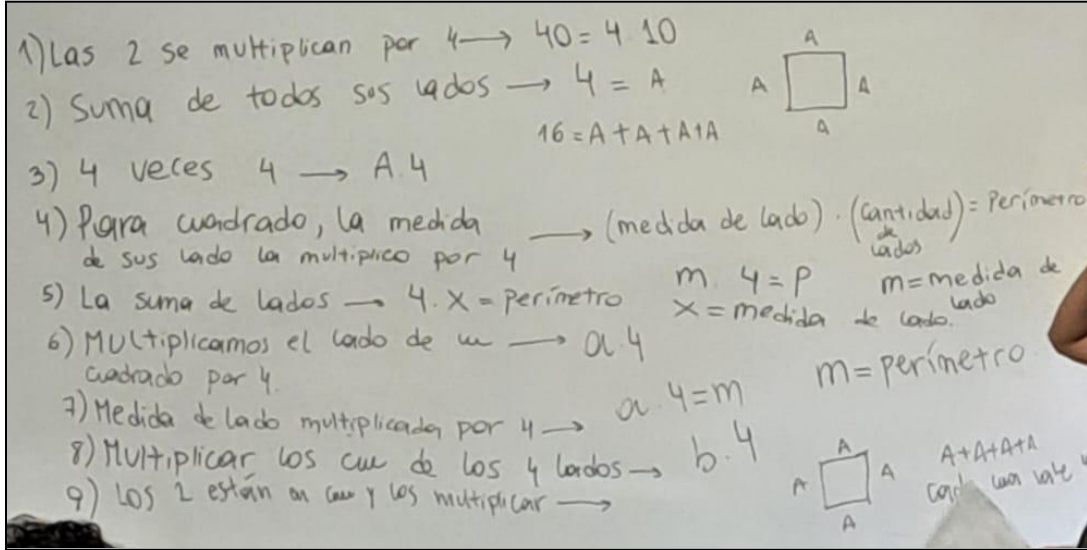 1) Las 2 se multiplican por 4 → 40 = 4. 10
2) Suma de todos sus lados → 4 = A
16 = A + A + A + A
A
A A
A
3) 4 veces 4 → A.4
4) Para cuadrado, la medida
de sus lado la multiplico por 4 → (medida de lado) . (cantidad de lados) = Perímetro
m. 4 = P m = medida de lado
5) La suma de lados → 4. X = Perímetro X = medida de lado.
6) Multiplicamos el lado de un → a.4
cuadrado por 4.
7) Medida de lado multiplicada por 4 → a. 4 = m m = perímetro
8) Multiplicar los cm de los 4 lados → b. 4
9) Los 2 están en cm y los multiplicar →
A
A A
A
A+A+A+A